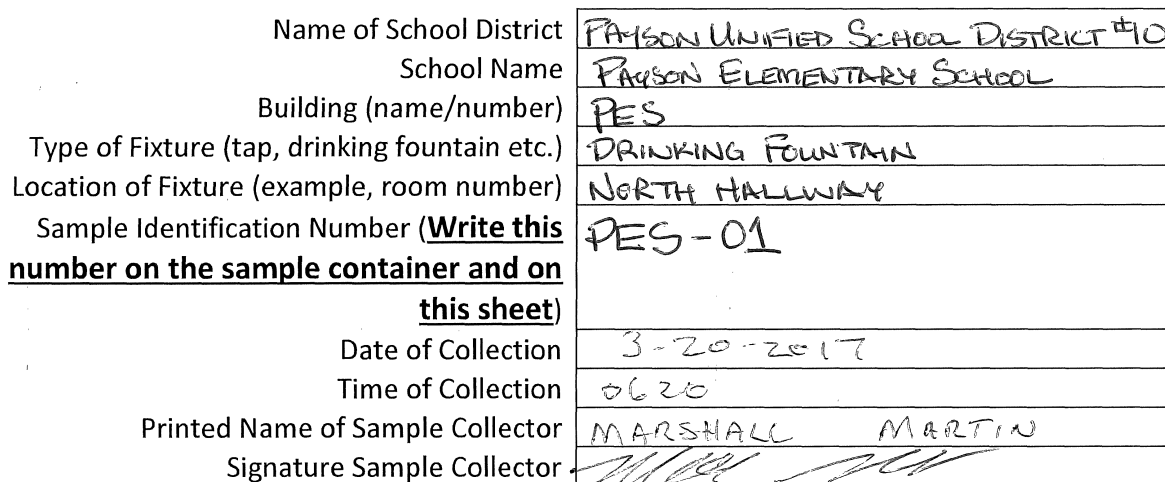 Name of School District PAYSON UNIFIED SCHOOL DISTRICT #10
School Name PAYSON ELEMENTARY SCHOOL
Building (name/number) PES
Type of Fixture (tap, drinking fountain etc.) DRINKING FOUNTAIN
Location of Fixture (example, room number) NORTH HALLWAY
Sample Identification Number (Write this PES-01
number on the sample container and on
this sheet)
Date of Collection 3-20-2017
Time of Collection 0620
Printed Name of Sample Collector MARSHALL MARTIN
Signature Sample Collector